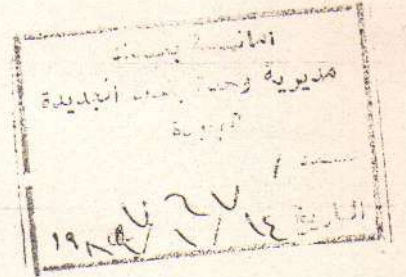 امانة بغداد
مديرية وحدة بغداد الجديدة
العدد / ٧٦٧
التاريخ ١٤ / ١ /